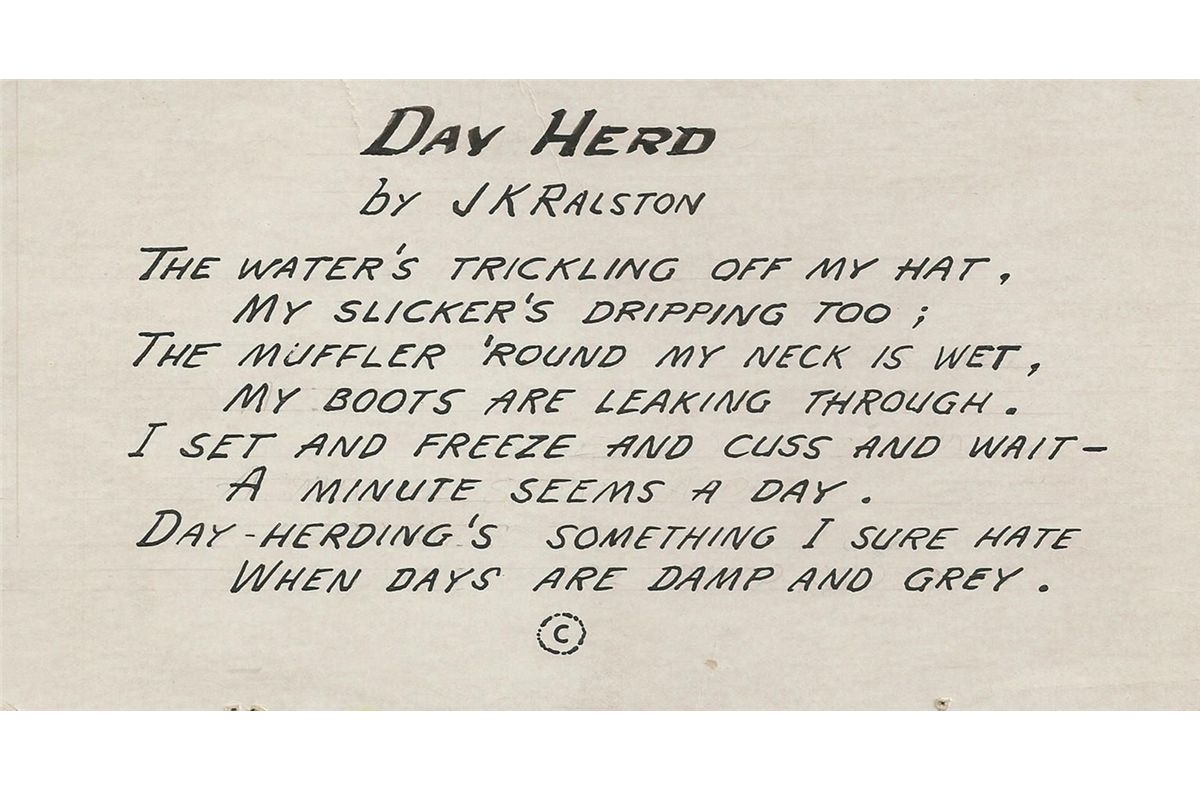 DAY HERD
by J K RALSTON
THE WATER'S TRICKLING OFF MY HAT,
MY SLICKER'S DRIPPING TOO;
THE MUFFLER 'ROUND MY NECK IS WET,
MY BOOTS ARE LEAKING THROUGH.
I SET AND FREEZE AND CUSS AND WAIT-
A MINUTE SEEMS A DAY.
DAY-HERDING'S SOMETHING I SURE HATE
WHEN DAYS ARE DAMP AND GREY.
©